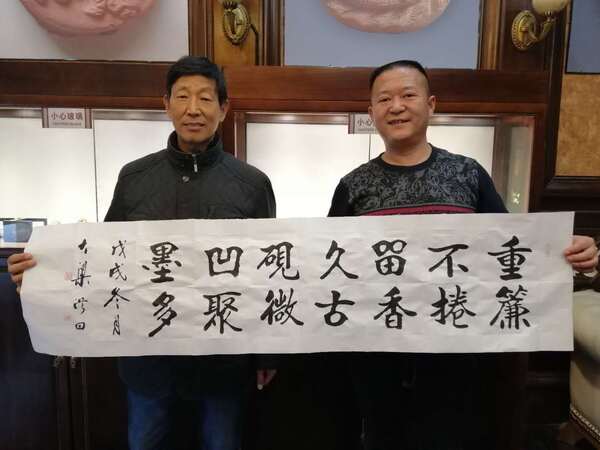 小心玻璃
小心
重簾
不捲
留香
久古
硯微
凹聚
墨多
戊戌冬月